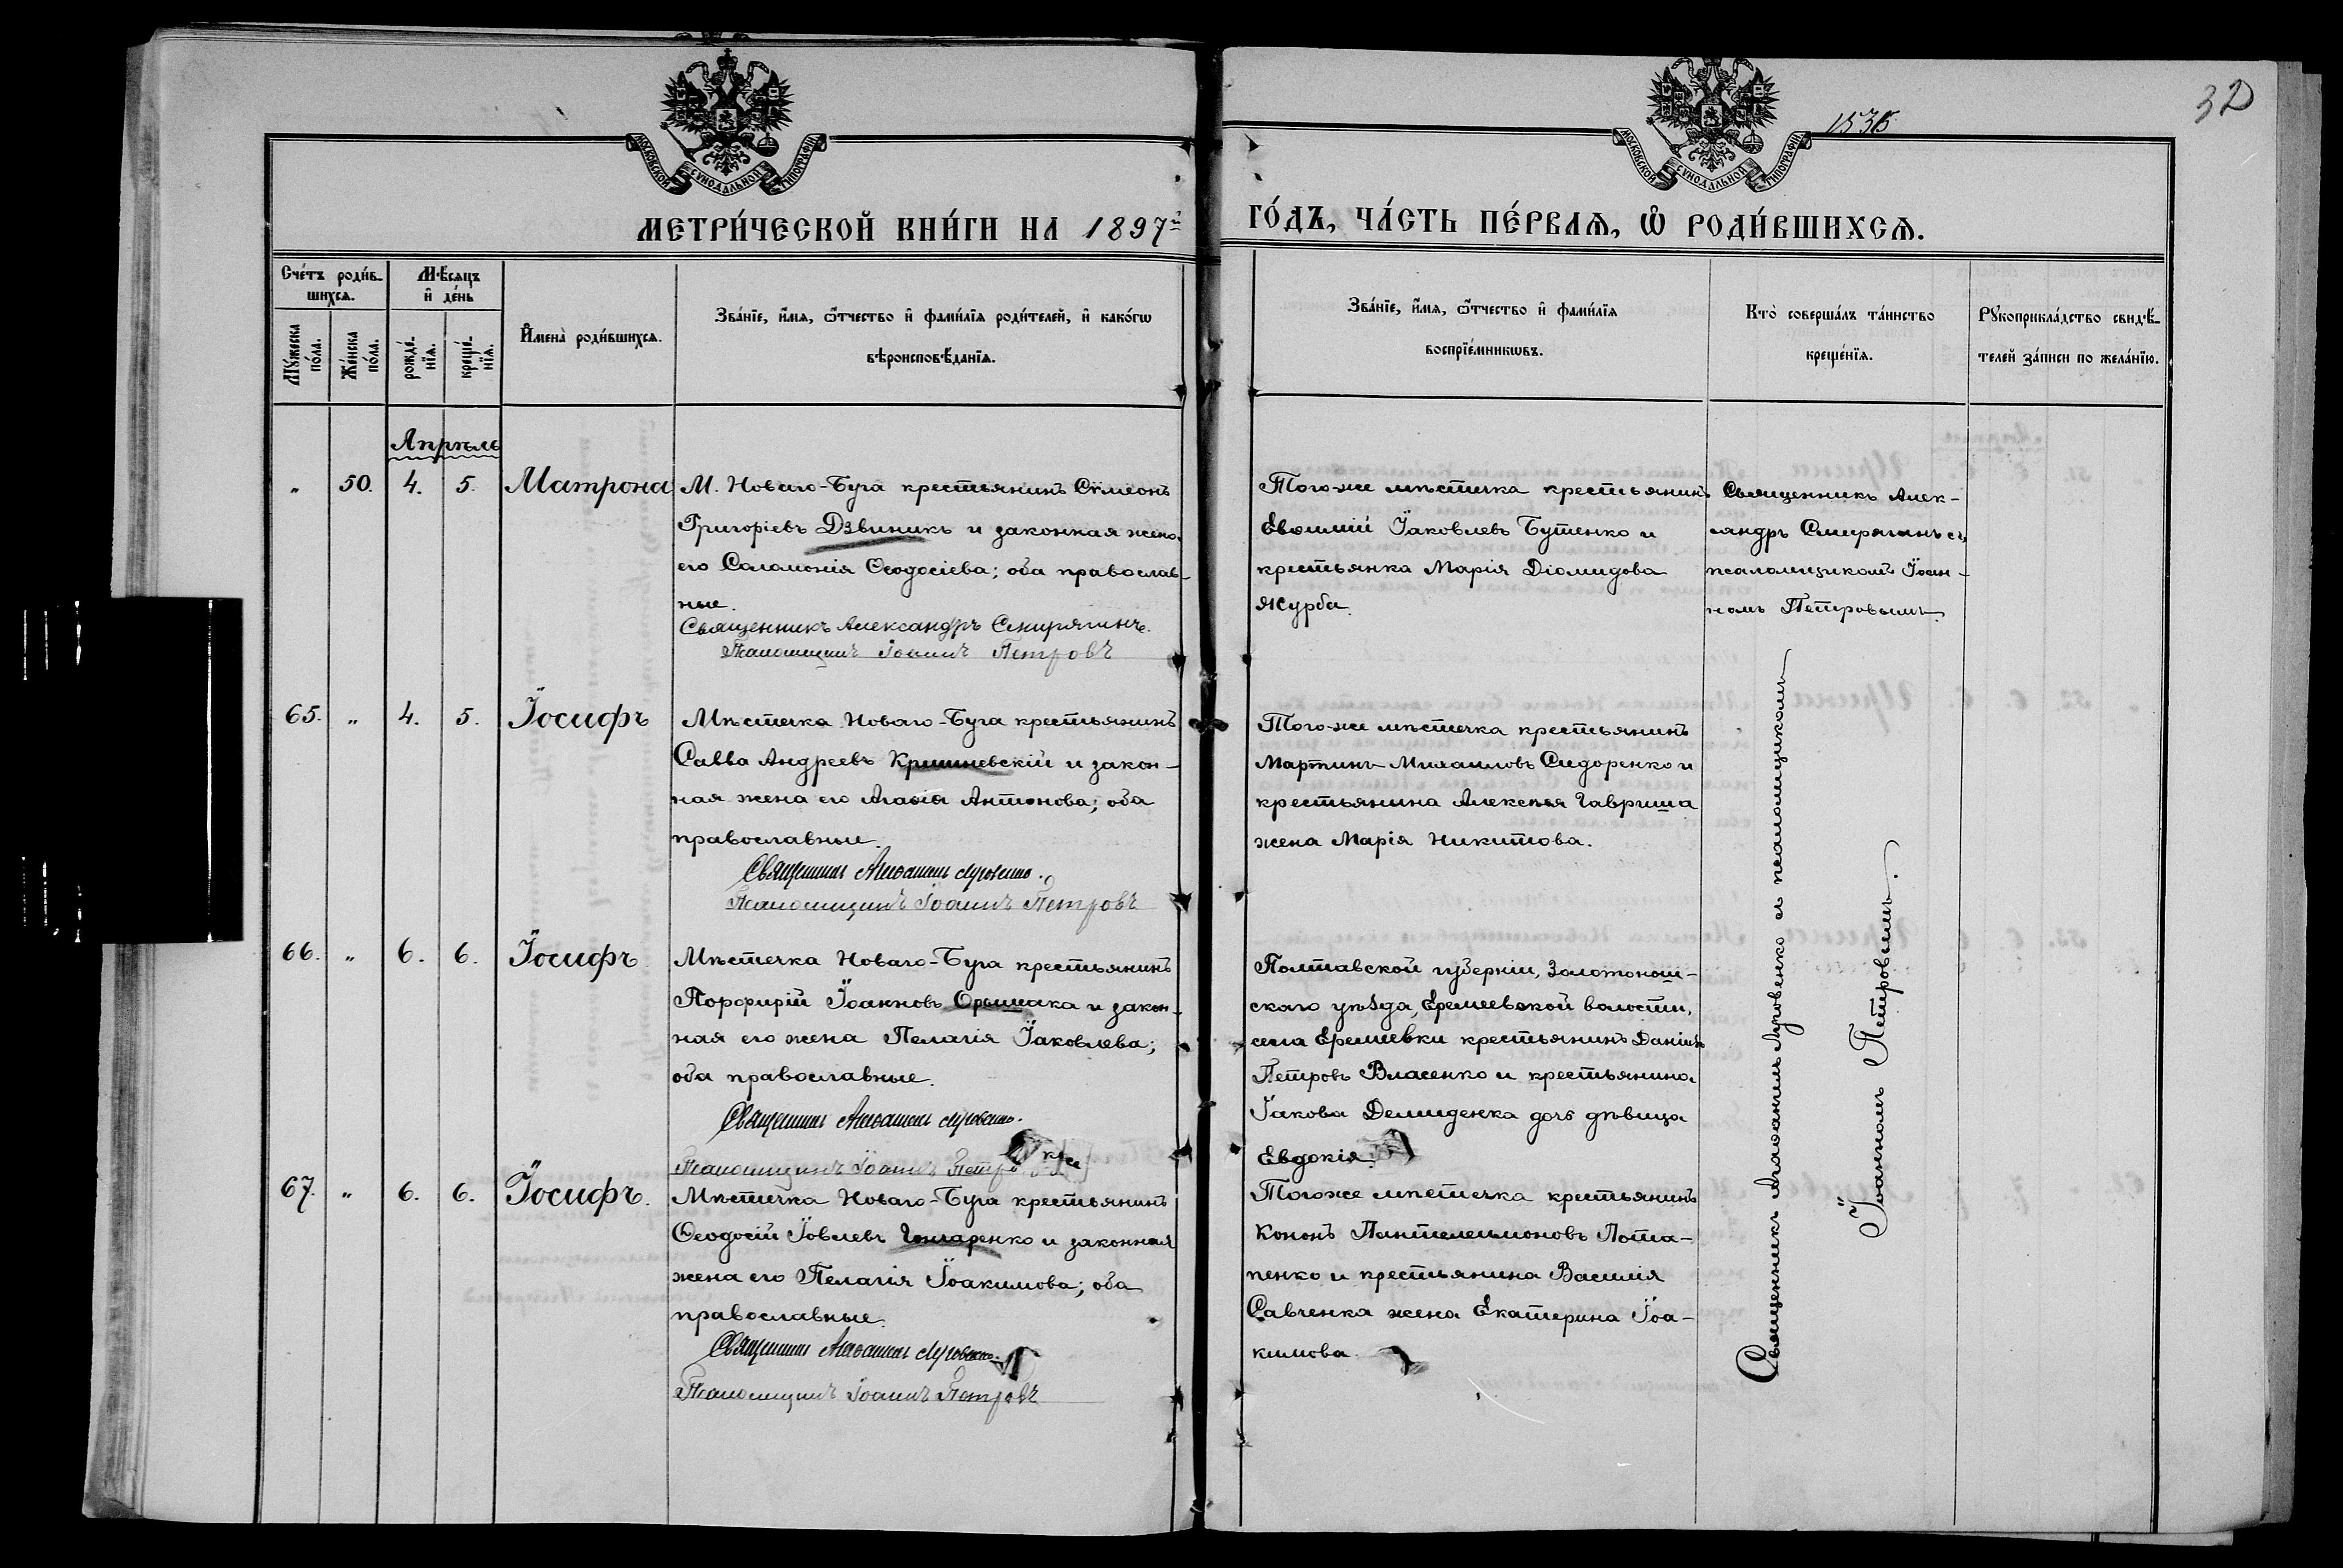 32
1536
МОСКОВСКОЙ СѴНОДАЛЬНОЙ ТИПОГРАФІИ
МОСКОВСКОЙ СѴНОДАЛЬНОЙ ТИПОГРАФІИ
МЕТРИ́ЧЕСКОЙ КНИ́ГИ НА 1897й
ГО́ДЪ, ЧА́СТЬ ПЕ́РВАѦ, Ѡ РОДИ́ВШИХСѦ.
Сче́тъ роди́в-
шихсѧ.
Мѣ́сяцъ
и҆ де́нь
Мꙋ́жеска по́ла.
Же́нска по́ла.
рожде́нїѧ.
креще́нїѧ.
И҆мена̀ роди́вшихсѧ.
Зва́нїе, и҆́мѧ, ѻ҆́тчество и҆ фами́лїѧ роди́телей, и҆ како́гѡ
вѣроисповѣ́данїѧ.
Зва́нїе, и҆́мѧ, ѻ҆́тчество и҆ фами́лїѧ
воспрїе́мникѡвъ.
Кто̀ соверша́лъ та́инство
креще́нїѧ.
Рꙋкоприкла́дство свидѣ́-
телей за́писи по жела́нїю.
Апрѣль
„ 50. 4. 5. Матрона
М. Новаго-Буга крестьянинъ Сѵмеонъ
Григоріевъ Дзвиникъ и законная жена
его Саломонія Ѳеодосіева; оба православ-
ные.
Священникъ Александръ Смирягинъ.
Псаломщикъ Іоаннъ Петровъ
Того-же мѣстечка крестьянинъ
Евѳимій Іаковлевъ Бутенко и
крестьянка Марія Діомидова
Журба.
Священникъ Алек-
сандръ Смирягинъ съ
псаломщикомъ Іоан-
номъ Петровымъ.
65. „ 4. 5. Іосифъ
Мѣстечка Новаго-Буга крестьянинъ
Савва Андреевъ Кришневскій и закон-
ная жена его Агаѳія Антонова; оба
православные.
Священникъ Аѳанасій Луговенко.
Псаломщикъ Іоаннъ Петровъ
Того-же мѣстечка крестьянинъ
Мартинъ Михаиловъ Сидоренко и
крестьянина Алексѣя Гавриша
жена Марія Никитова.
66. „ 6. 6. Іосифъ
Мѣстечка Новаго-Буга крестьянинъ
Порфирій Іоанновъ Орышака и закон-
ная его жена Пелагія Іаковлева;
оба православные.
Священникъ Аѳанасій Луговенко.
Псаломщикъ Іоаннъ Петро
Полтавской губерніи, Золотонош-
скаго уѣзда, Еремеевской волости,
села Еремеевки крестьянинъ Даніилъ
Петровъ Власенко и крестьянина
Іакова Демиденка дочь дѣвица
Евдокія.
67. „ 6. 6. Іосифъ.
Мѣстечка Новаго-Буга крестьянинъ
Ѳеодосій Іовлевъ Гончаренко и законная
жена его Пелагія Іоакимова; оба
православные.
Священникъ Аѳанасій Луговенко.
Псаломщикъ Іоаннъ Петровъ
Тогоже мѣстечка крестьянинъ
Кононъ Пантелеимоновъ Пота-
пенко и крестьянина Василія
Савченка жена Екатерина Іоа-
кимова.
Священникъ Аѳанасій Луговенко съ псаломщикомъ
Іоанномъ Петровымъ.